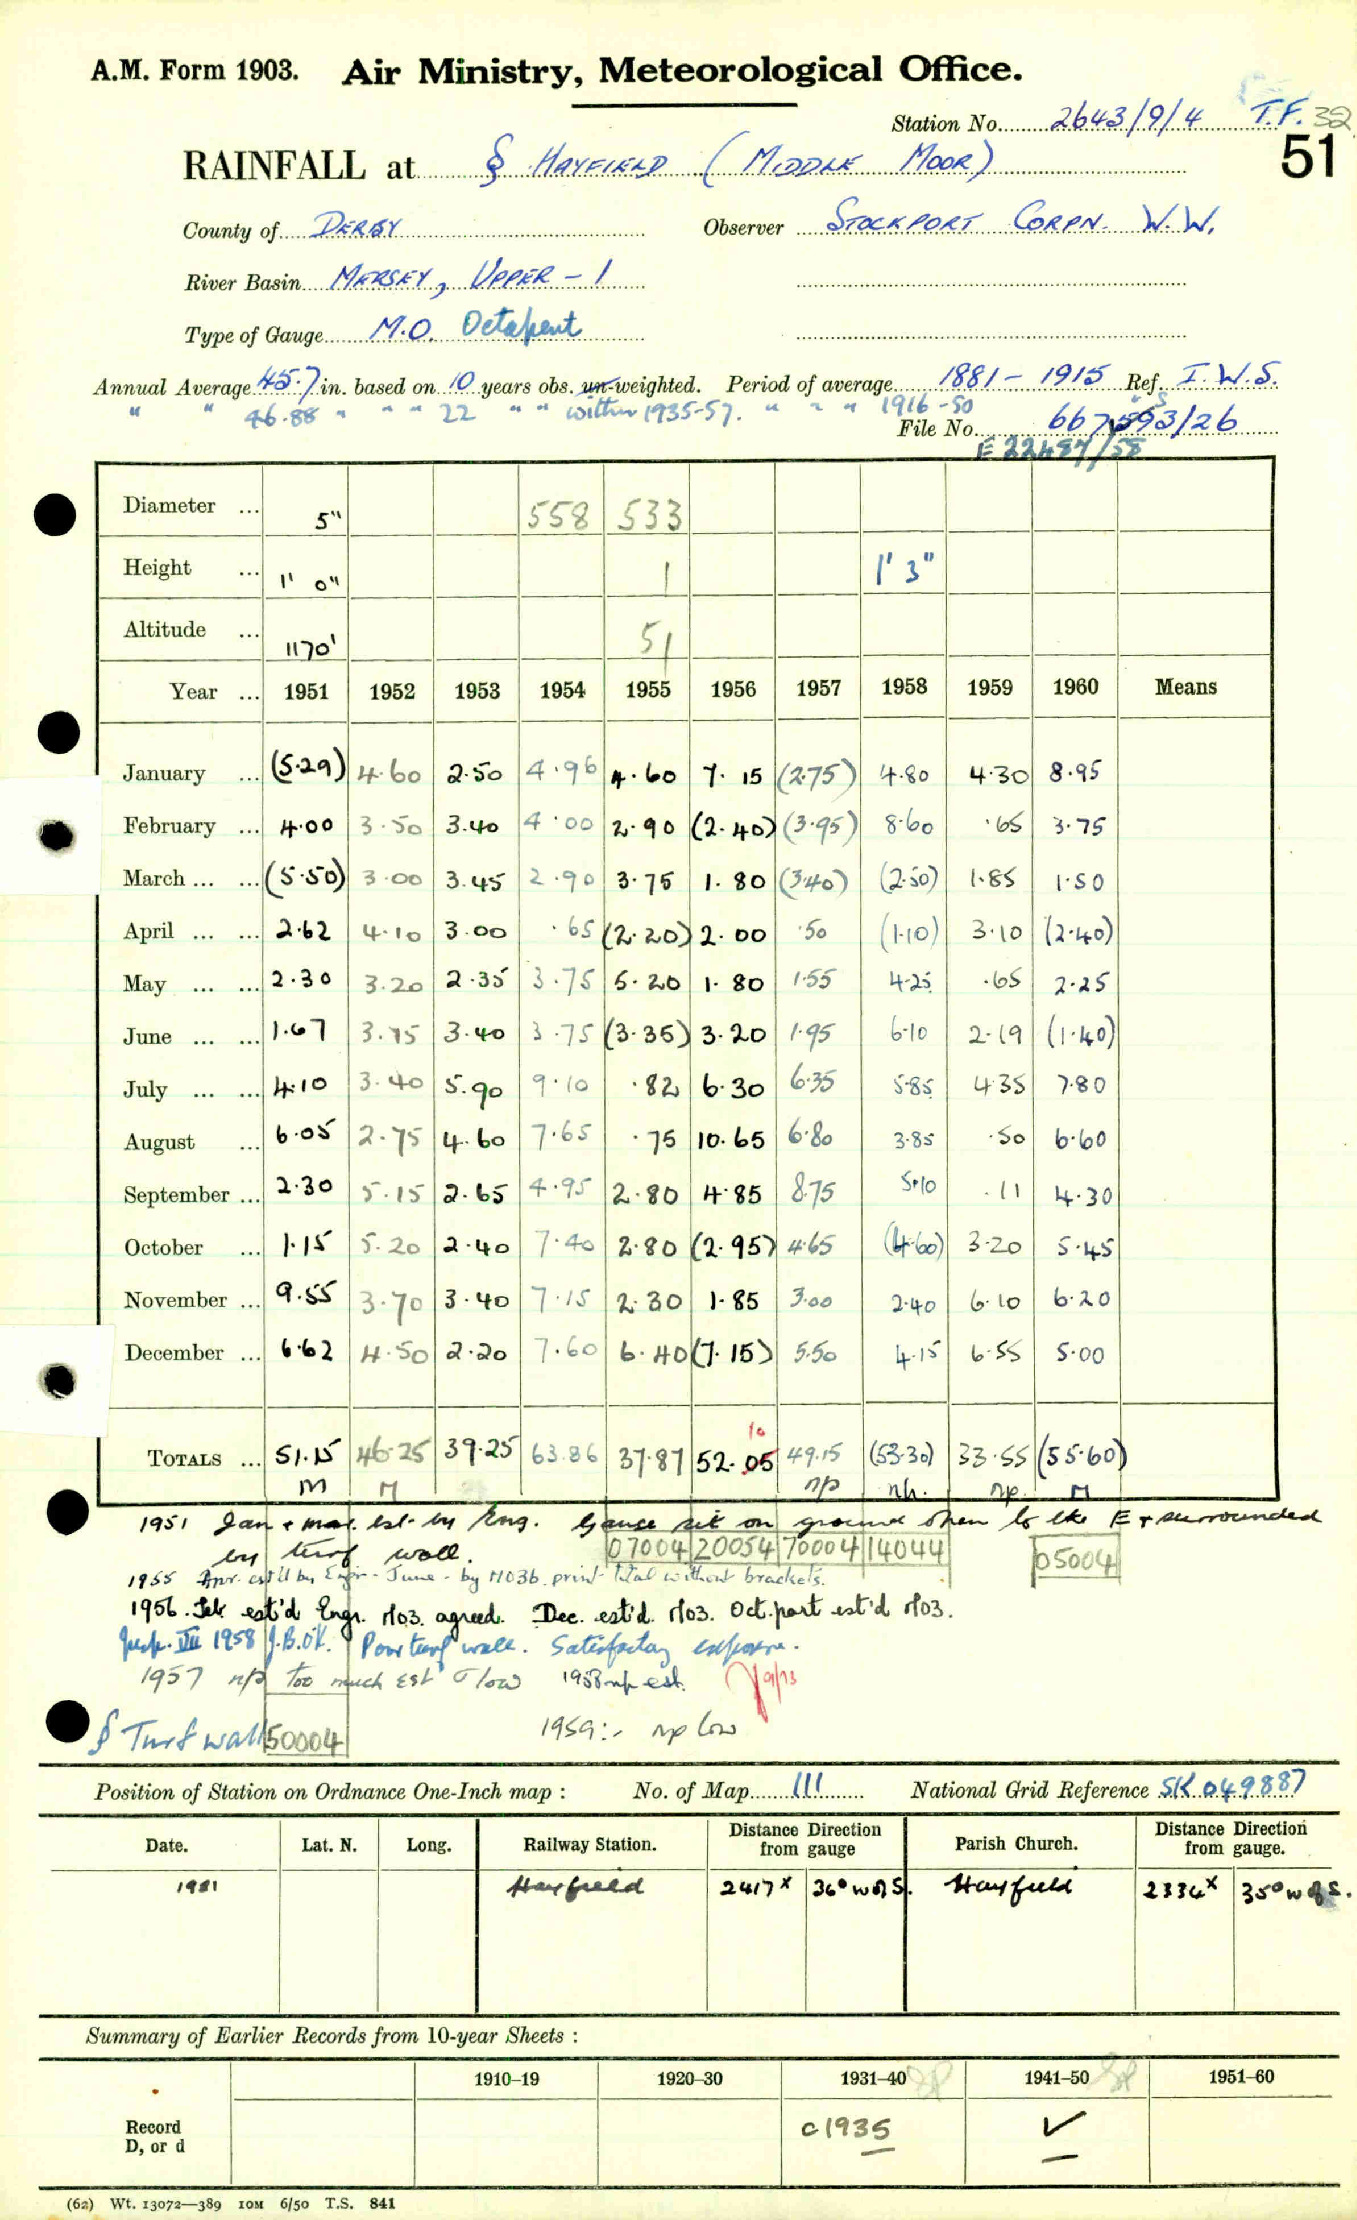 A.M. Form 1903. Air Ministry, Meteorological Office.
Station No. 2643/9/4 T.F. 32
51
RAINFALL at § HAYFIELD (MIDDLE MOOR)
County of DERBY Observer STOCKPORT CORPN. W.W.
River Basin MERSEY, UPPER - 1
Type of Gauge M.O. Octapent
Annual Average 45.7 in. based on 10 years obs. un-weighted. Period of average 1881 - 1915 Ref. I.W.S.
" " 46.88 " " " 22 " " within 1935-57. " " " 1916-50
File No. 667593/26
E 22487/58
Diameter ... 5" 558 533
Height ... 1' 0" 1 1' 3"
Altitude ... 1170' 51
Year ... 1951 1952 1953 1954 1955 1956 1957 1958 1959 1960 Means
January ... (5.29) 4.60 2.50 4.96 4.60 7.15 (2.75) 4.80 4.30 8.95
February ... 4.00 3.50 3.40 4.00 2.90 (2.40) (3.95) 8.60 .65 3.75
March ... ... (5.50) 3.00 3.45 2.90 3.75 1.80 (3.40) (2.50) 1.85 1.50
April ... ... 2.62 4.10 3.00 .65 (2.20) 2.00 .50 (1.10) 3.10 (2.40)
May ... ... 2.30 3.20 2.35 3.75 5.20 1.80 1.55 4.25 .65 2.25
June ... ... 1.67 3.15 3.40 3.75 (3.35) 3.20 1.95 6.10 2.19 (1.40)
July ... ... 4.10 3.40 5.90 9.10 .82 6.30 6.35 5.85 4.35 7.80
August ... 6.05 2.75 4.60 7.65 .75 10.65 6.80 3.85 .50 6.60
September ... 2.30 5.15 2.65 4.95 2.80 4.85 8.75 5.10 .11 4.30
October ... 1.15 5.20 2.40 7.40 2.80 (2.95) 4.65 (4.60) 3.20 5.45
November ... 9.55 3.70 3.40 7.15 2.30 1.85 3.00 2.40 6.10 6.20
December ... 6.62 4.50 2.20 7.60 6.40 (7.15) 5.50 4.15 6.55 5.00
10
TOTALS ... 51.15 46.25 39.25 63.86 37.87 52.05 49.15 (53.30) 33.55 (55.60)
m M np nh. np. M
1951 Jan + mar. est. by Eng. Gauge set on ground open to the E + surrounded
by turf wall. 07004 20054 70004 14044 05004
1955 Apr. est'd by Engr - June - by MO3b. print total without brackets.
1956. Feb est'd Engr. MO3. agreed. Dec. est'd. MO3. Oct. part est'd MO3.
Insp. VII 1958 J.B. OK. Poor turf wall. Satisfactory exposure.
1957 np too much est & low 1958 np est. 9/73
§ Turf wall 50004 1959:- np low
Position of Station on Ordnance One-Inch map : No. of Map 111 National Grid Reference SK 049887
Date. Lat. N. Long. Railway Station. Distance from Direction gauge Parish Church. Distance from Direction gauge.
1921 Hayfield 2417x 36° W of S. Hayfield 2334x 35° W of S.
Summary of Earlier Records from 10-year Sheets :
1910–19 1920–30 1931–40 1941–50 1951–60
Record
D, or d c1935 ✓
(62) Wt. 13072—389 10M 6/50 T.S. 841